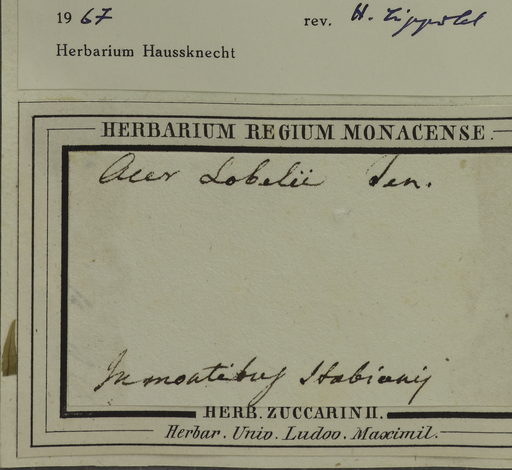 1967 rev. H. Lippold
Herbarium Haussknecht
HERBARIUM REGIUM MONACENSE.
Acer Lobelii Ten.
In montibus Stabianis
HERB. ZUCCARINII.
Herbar. Univ. Ludov. Maximil.